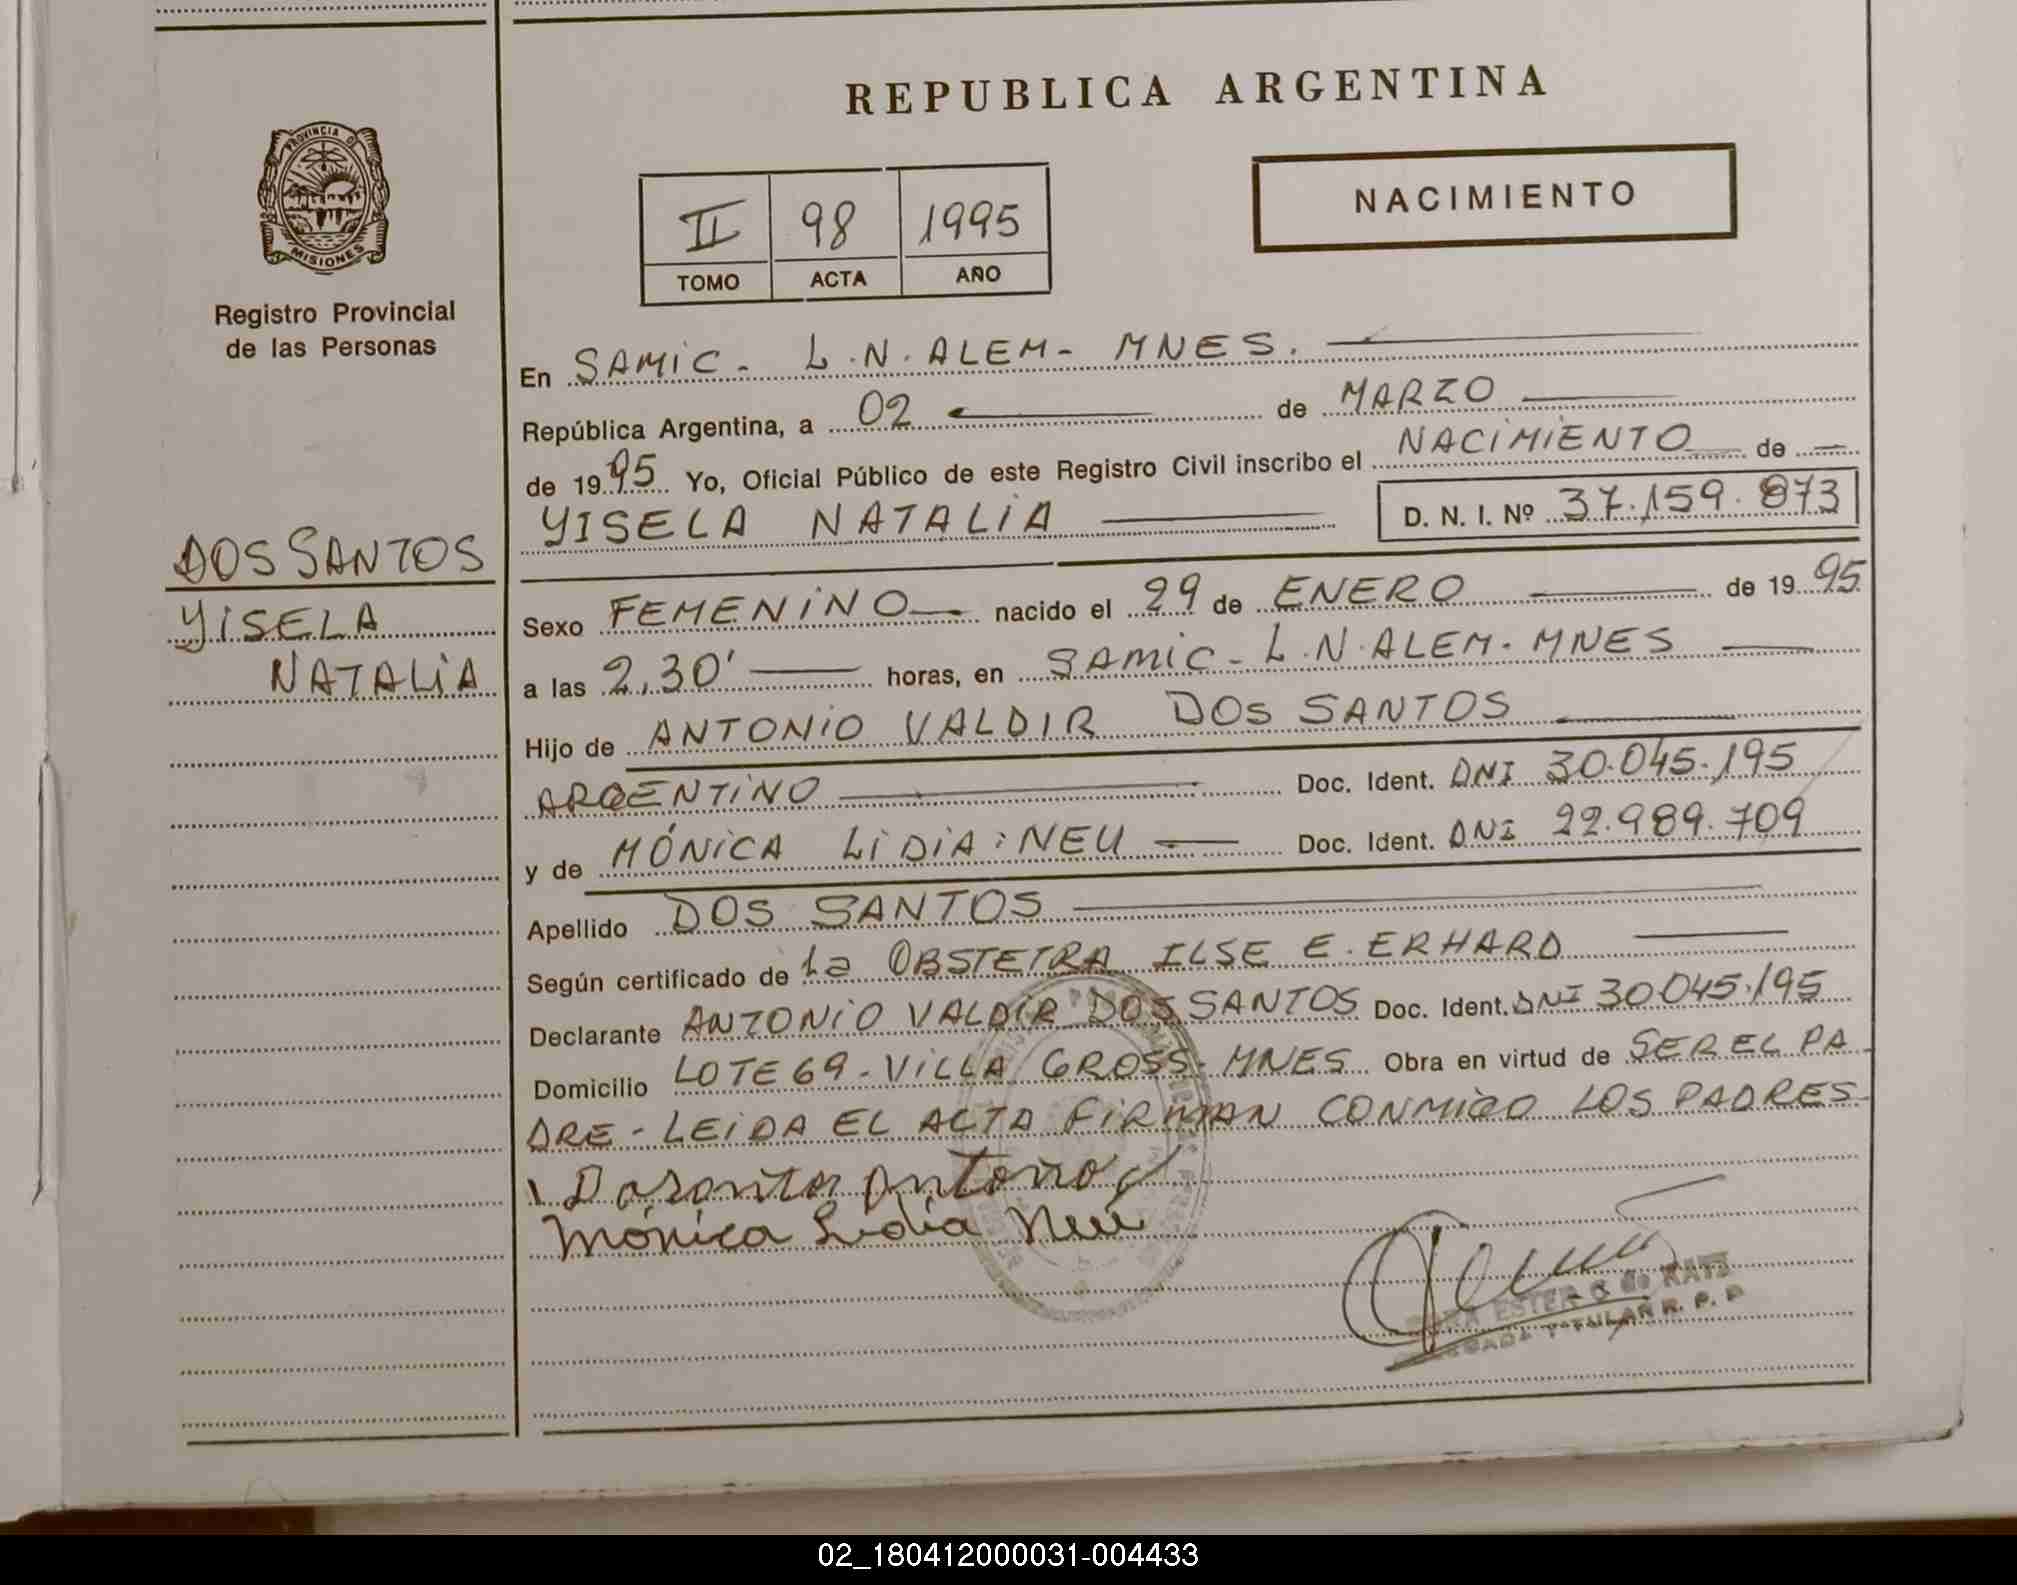 REPUBLICA ARGENTINA
PROVINCIA DE
MISIONES
Registro Provincial
de las Personas
II 98 1995
TOMO ACTA AÑO
NACIMIENTO
En SAMIC - L.N. ALEM - MNES.
República Argentina, a 02 de MARZO
de 1995 Yo, Oficial Público de este Registro Civil inscribo el NACIMIENTO de
YISELA NATALIA D. N. I. Nº 37.159.873
DOS SANTOS
YISELA
NATALIA
Sexo FEMENINO nacido el 29 de ENERO de 1995
a las 2,30' horas, en SAMIC - L.N. ALEM - MNES
Hijo de ANTONIO VALDIR DOS SANTOS
ARGENTINO Doc. Ident. DNI 30.045.195
y de MÓNICA LIDIA NEU Doc. Ident. DNI 22.989.709
Apellido DOS SANTOS
Según certificado de la OBSTETRA ILSE E. ERHARD
Declarante ANTONIO VALDIR DOS SANTOS Doc. Ident. DNI 30045.195
Domicilio LOTE 69 - VILLA GROSS - MNES Obra en virtud de SER EL PA
DRE - LEIDA EL ACTA FIRMAN CONMIGO LOS PADRES
Dosantos Antonio
Mónica Lidia Neu
ESTER G de KATZ
TITULAR R. P. P.
02_180412000031-004433